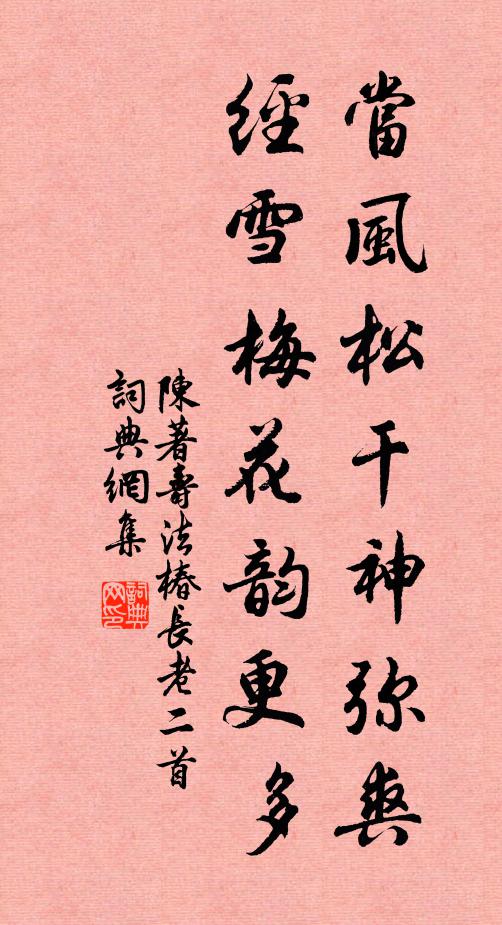 當風松干神弥爽
經雪梅花韵更多
陳著壽法椿長老二首
詞典網集
詞典网印